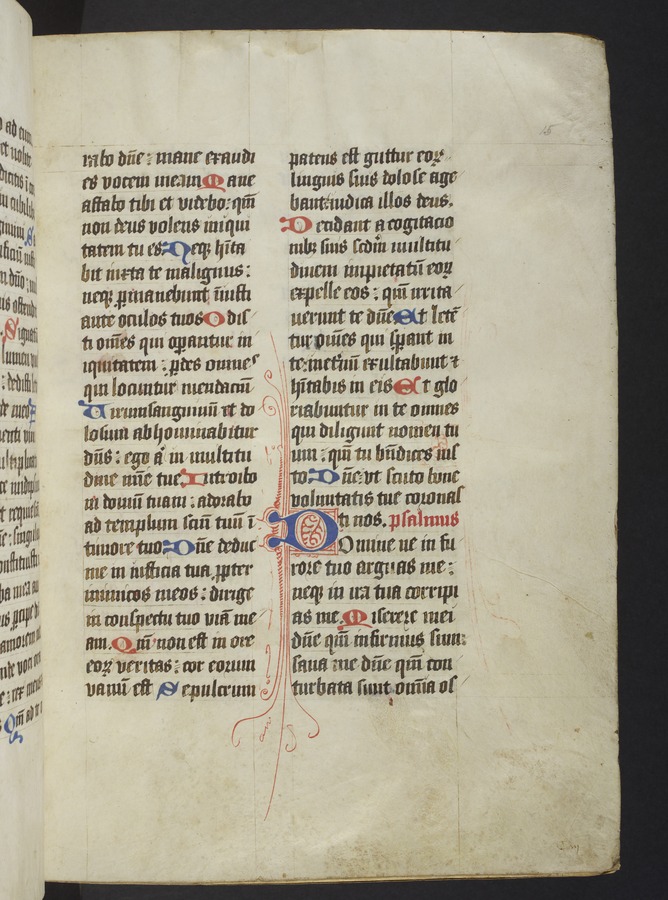 rabo dñe : mane exaudi
es vocem meam Mane
astabo tibi et videbo : qm̄
non deus volens iniqui
tatem tu es Neqꝫ hita
bit iuxta te malignus :
neqꝫ ꝑmanebunt iniusti
ante oculos tuos Odis
ti om̄es qui oꝑantur in
iquitatem : ꝑdes omnes
qui locuntur mendaciū
Virum sanguinū et do
losum abhominabitur
dñs : ego aū in multitu
dine mīe tue Introibo
in domū tuam : adorabo
ad templum scm̄ tuū ī
timore tuo Dñe deduc
me in iusticia tua ꝓpter
inimicos meos : dirige
in conspectu tuo viā me
am . Qm̄ non est in ore
eoꝝ veritas : cor eorum
vanū est Sepulcrum
patens est guttur eoꝝ
linguis suis dolose age
bant : iudica illos deus .
Decidant a cogitacio
nibꝫ suis scdm̄ multitu
dinem impietatū eoꝝ
expelle eos : qm̄ irrita
uerunt te dñe Et letēt
tur om̄es qui sperant in
te : in et̄nū exultabunt et
hitabis in eis Et glo
riabuntur in te omnes
qui diligunt nomen tu
um : qm̄ tu bñdices ius
to Dñe vt scuto bone
voluntatis tue coronas
ti nos . psalmus
Domine ne in fu
rore tuo arguas me :
neqꝫ in ira tua corripi
as me . Miserere mei
dñe qm̄ infirmus sum :
sana me dñe qm̄ con
turbata sunt om̄ia os